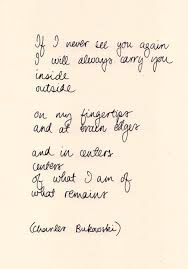 If I never see you again
I will always carry you
inside
outside
on my fingertips
and at brain edges
and in centers
centers
of what I am of
what remains
(Charles Bukowski)